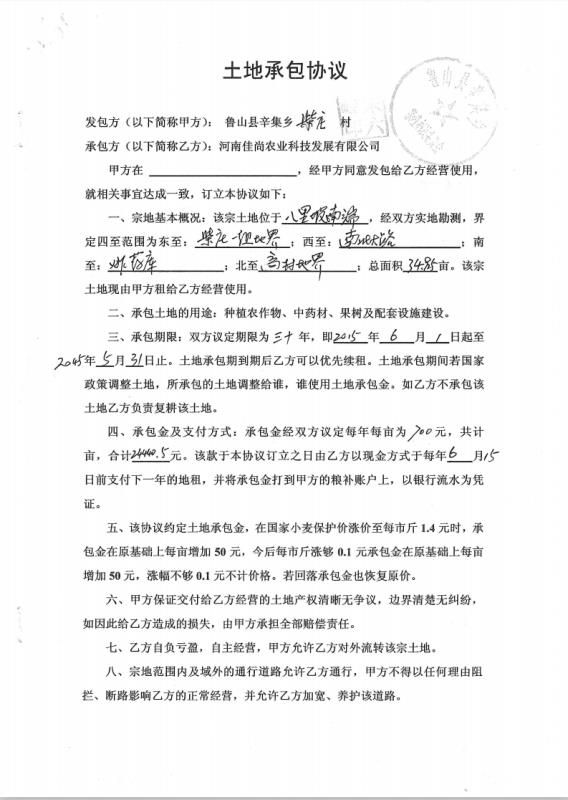 土地承包协议
鲁山县辛集乡
发包方（以下简称甲方）： 鲁山县辛集乡 柴庄 村
承包方（以下简称乙方）：河南佳尚农业科技发展有限公司
甲方在 ，经甲方同意发包给乙方经营使用，
就相关事宜达成一致，订立本协议如下：
一、宗地基本概况：该宗土地位于 八里坡南端 ，经双方实地勘测，界
定四至范围为东至： 柴庄一组地界 ；西至： 南北大路 ；南
至： 炸药库 ；北至 高村地界 ；总面积 34.85 亩。该宗
土地现由甲方租给乙方经营使用。
二、承包土地的用途：种植农作物、中药材、果树及配套设施建设。
三、承包期限：双方议定期限为 三十 年，即 2015 年 6 月 1 日起至
2045 年 5 月 31 日止。土地承包期到期后乙方可以优先续租。土地承包期间若国家
政策调整土地，所承包的土地调整给谁，谁使用土地承包金。如乙方不承包该
土地乙方负责复耕该土地。
四、承包金及支付方式：承包金经双方议定每年每亩为 700 元，共计
亩，合计 元。该款于本协议订立之日由乙方以现金方式于每年 6 月 15
日前支付下一年的地租，并将承包金打到甲方的粮补账户上，以银行流水为凭
证。
五、该协议约定土地承包金，在国家小麦保护价涨价至每市斤 1.4 元时，承
包金在原基础上每亩增加 50 元，今后每市斤涨够 0.1 元承包金在原基础上每亩
增加 50 元，涨幅不够 0.1 元不计价格。若回落承包金也恢复原价。
六、甲方保证交付给乙方经营的土地产权清晰无争议，边界清楚无纠纷，
如因此给乙方造成的损失，由甲方承担全部赔偿责任。
七、乙方自负亏盈，自主经营，甲方允许乙方对外流转该宗土地。
八、宗地范围内及域外的通行道路允许乙方通行，甲方不得以任何理由阻
拦、断路影响乙方的正常经营，并允许乙方加宽、养护该道路。